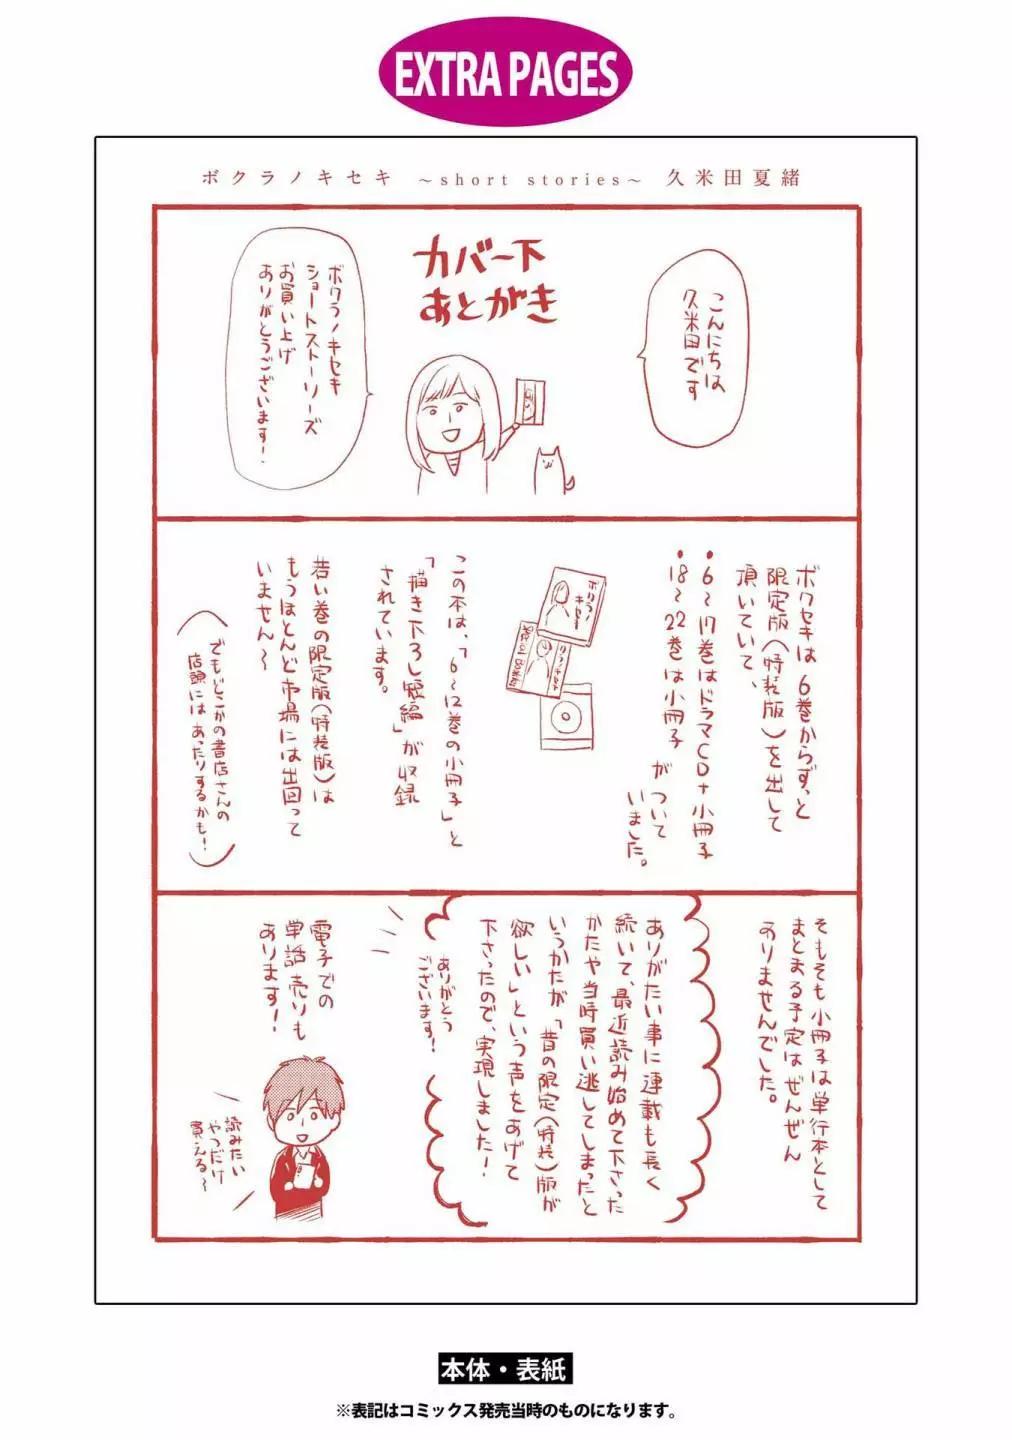 EXTRA PAGES
ボクラノキセキ ～short stories～ 久米田夏緒
カバー下
あとがき
こんにちは
久米田です
ボクラノキセキ
ショートストーリーズ
お買い上げ
ありがとうございます!
ボクセキは6巻からずっと
限定版(特装版)を出して
頂いていて、
・6～17巻はドラマCD+小冊子
・18～22巻は小冊子 が ついて
いました。
ボクラノ
キセキ
この本は、「6～12巻の小冊子」と
「描き下ろし短編」が収録
されています。
若い巻の限定版(特装版)は
もうほとんど市場には出回って
いません～
でもどこかの書店さんの
店頭にはあったりするかも!
そもそも小冊子は単行本として
まとまる予定はぜんぜん
ありませんでした。
ありがたい事に連載も長く
続いて、最近読み始めて下さった
かたや当時買い逃してしまったと
いうかたが「昔の限定(特装)版が
欲しい」という声をあげて
下さったので、実現しました!
ありがとう
ございます!
電子での
単話売りも
あります!
読みたい
やつだけ
買える～
本体・表紙
※表記はコミックス発売当時のものになります。